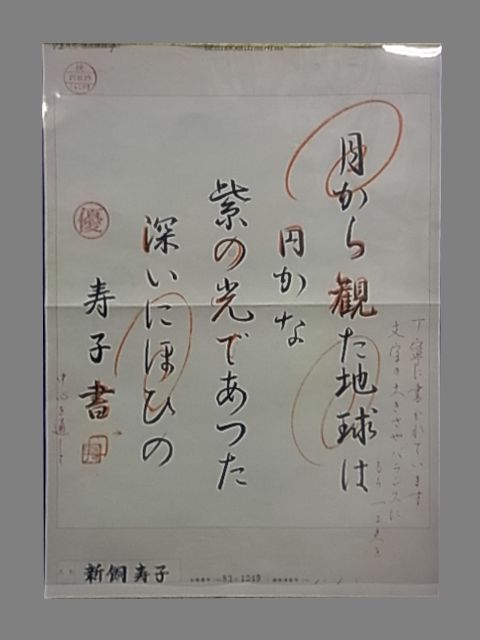 月から観た地球は
円かな
紫の光であつた
深いにほひの
寿子書
優
丁寧に書かれています
文字の大きさやバランスに
もう一工夫を
中心を通して
新飼寿子
83-1249